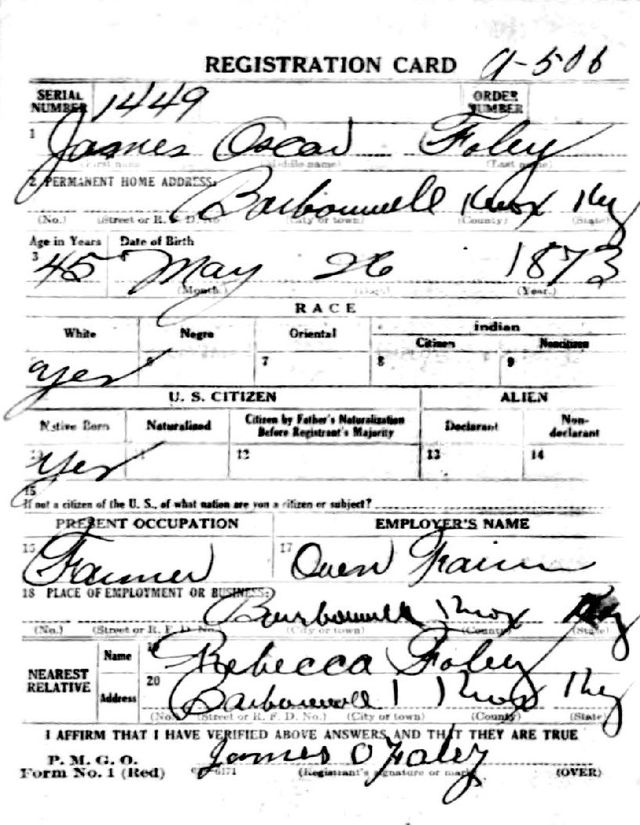 REGISTRATION CARD 9-506
SERIAL NUMBER 1449 ORDER NUMBER
1 James Oscar Foley
(First name) (Middle name) (Last name)
2 PERMANENT HOME ADDRESS:
Barbourvell Knox Ky
(No.) (Street or R. F. D. No.) (City or town) (County) (State)
Age in Years Date of Birth
3 45 May 26 1873
(Month.) (Day.) (Year.)
RACE
White Negro Oriental Indian
Citizen Noncitizen
yes 6 7 8 9
U. S. CITIZEN ALIEN
Native Born Naturalized Citizen by Father's Naturalization Before Registrant's Majority Declarant Non-declarant
10 yes 11 12 13 14
15
If not a citizen of the U. S., of what nation are you a citizen or subject?
PRESENT OCCUPATION EMPLOYER'S NAME
Farmer 17 Own Farm
18 PLACE OF EMPLOYMENT OR BUSINESS:
Barbourvell Knox Ky
(No.) (Street or R. F. D. No.) (City or town) (County) (State)
NEAREST RELATIVE
Name 19 Rebecca Foley
Address 20 Barbourvell Knox Ky
(No.) (Street or R. F. D. No.) (City or town) (County) (State)
I AFFIRM THAT I HAVE VERIFIED ABOVE ANSWERS AND THAT THEY ARE TRUE
P. M. G. O.
Form No. 1 (Red) James O Foley
(Registrant's signature or mark) (OVER)